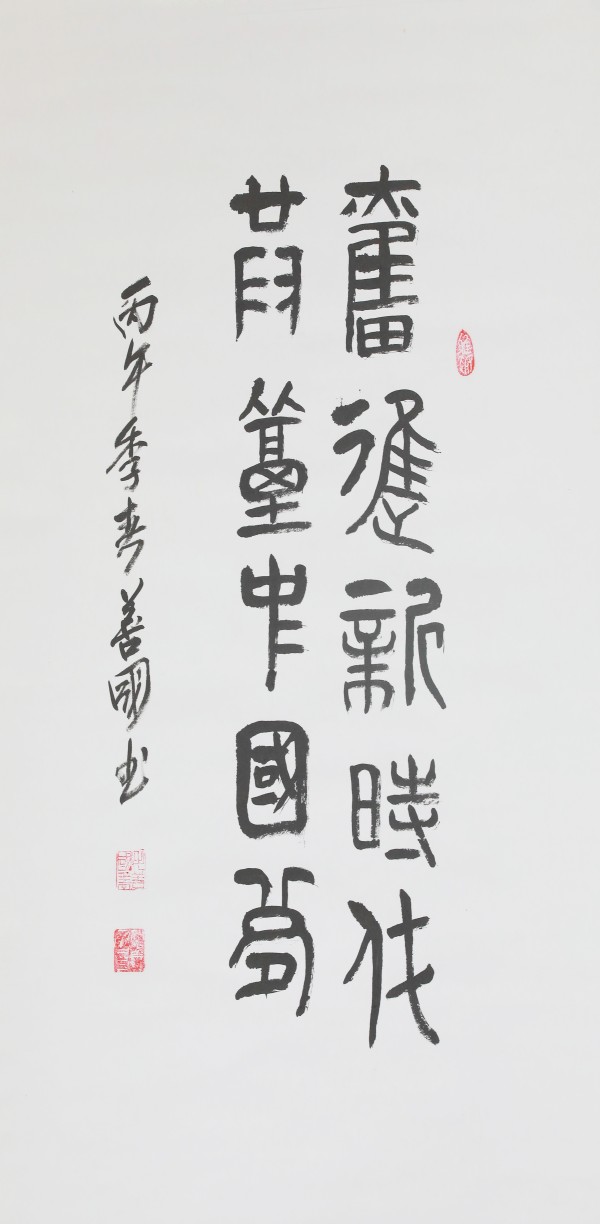 奮進新時代
共築中國夢
丙午季春善國书